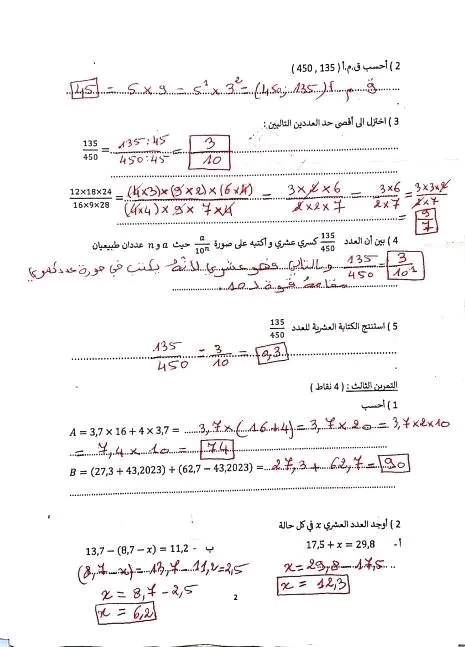 2 ) أحسب ق.م.أ ( 135 , 450 )
ق م أ (135 ; 450) = 3² × 5¹ = 9 × 5 = 45
3 ) اختزل الى أقصى حد العددين التاليين :
135/450 = 135:45/450:45 = 3/10
12×18×24/16×9×28 = (4×3)×(9×2)×(6×4)/(4×4)×9×7×4 = 3×2×6/2×2×7 = 3×6/2×7 = 3×3×2/2×7
= 9/7
4 ) بين أن العدد 135/450 كسري عشري و أكتبه على صورة a/10ⁿ حيث a و n عددان طبيعيان
135/450 = 3/10¹ وبالتالي فهو عشري لأنه يكتب في صورة عدد كسري
مقامه قوة لـ 10
5 ) استنتج الكتابة العشرية للعدد 135/450
135/450 = 3/10 = 0,3
التمرين الثالث : ( 4 نقاط )
1 ) أحسب
A = 3,7 × 16 + 4 × 3,7 = 3,7 × (16+4) = 3,7 × 20 = 3,7×2×10
= 7,4 × 10 = 74
B = (27,3 + 43,2023) + (62,7 − 43,2023) = 27,3 + 62,7 = 90
2 ) أوجد العدد العشري x في كل حالة
أ- 17,5 + x = 29,8
x = 29,8 - 17,5
x = 12,3
ب - 13,7 − (8,7 − x) = 11,2
(8,7 - x) = 13,7 - 11,2 = 2,5
x = 8,7 - 2,5
x = 6,2
2